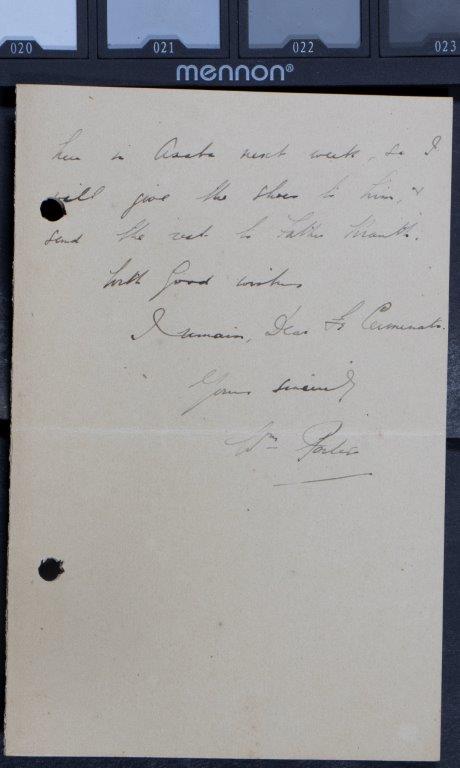 020 021 022 023
mennon®
here in Asaba next week, so I
will give the shoes to him, &
send the rest to Father
With Good wishes
I remain, Dear Fr
Yours sincerely
Wm Porter